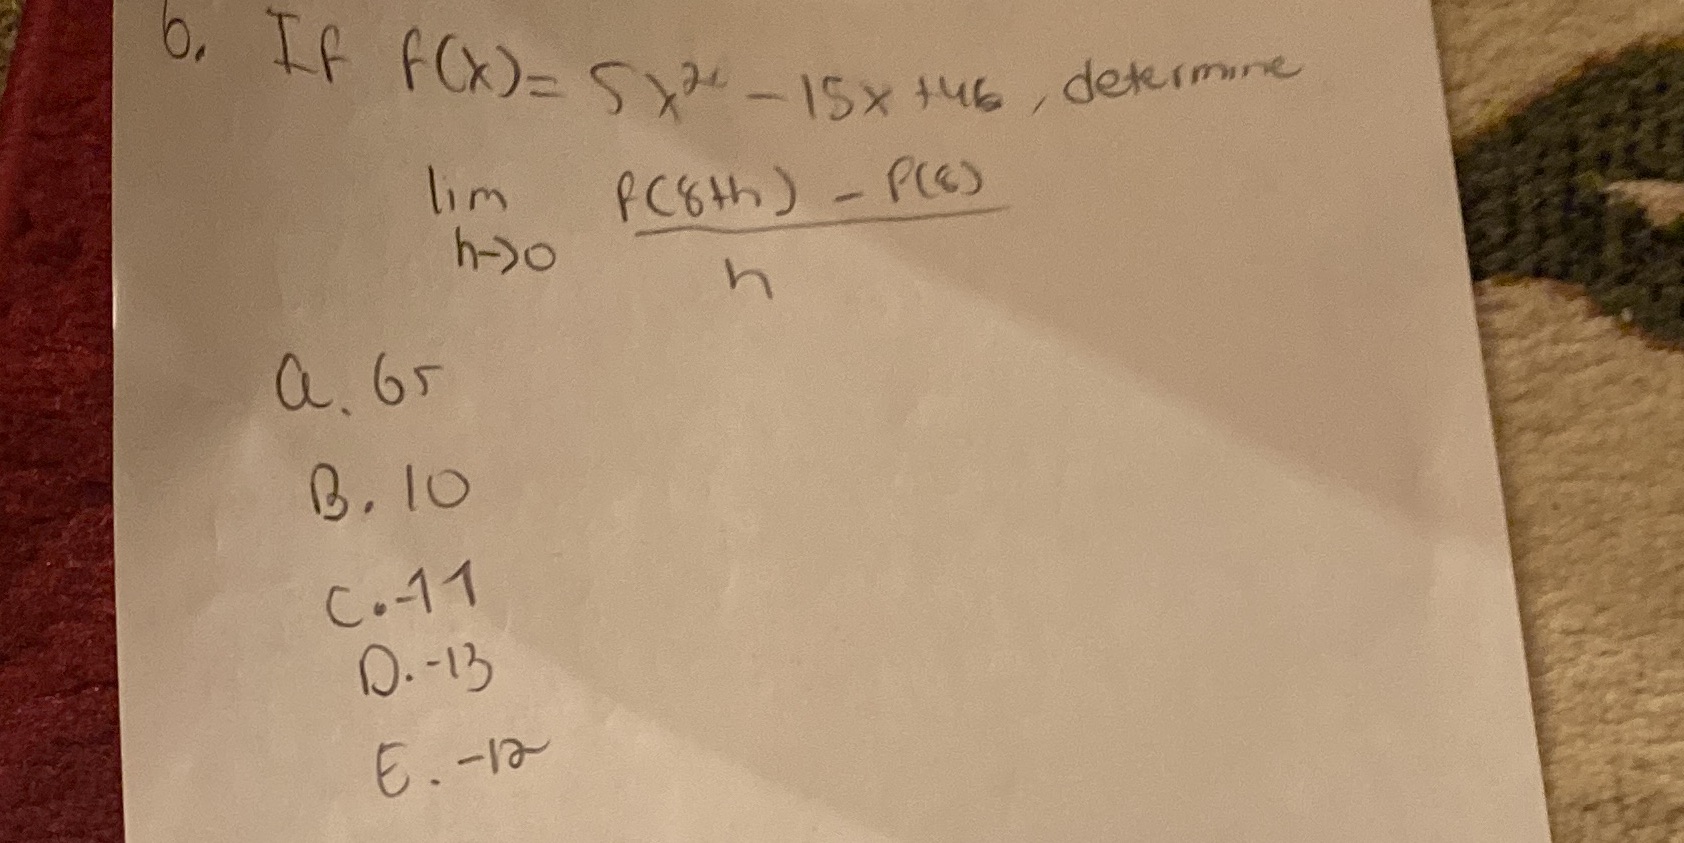 6. If f(x) = 5x² - 15x + 46, determine
lim f(8+h) - f(8)
h→0 h
a. 65
B. 10
C. -11
D. -13
E. -12